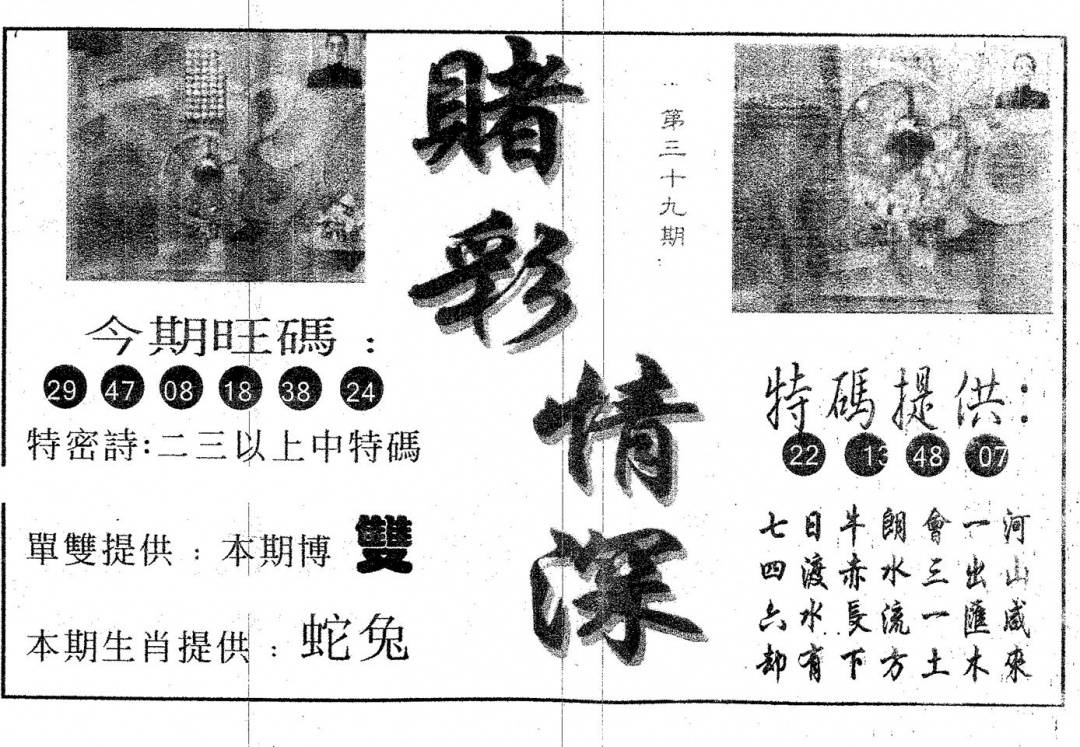 賭彩情深
第三十九期
今期旺碼：
29 47 08 18 38 24
特密詩:二三以上中特碼
單雙提供：本期博 雙
本期生肖提供：蛇兔
特碼提供：
22 13 48 07
河山咸來
一出匯木
會三一土
朗水流方
牛赤長下
日渡水有
七四六却